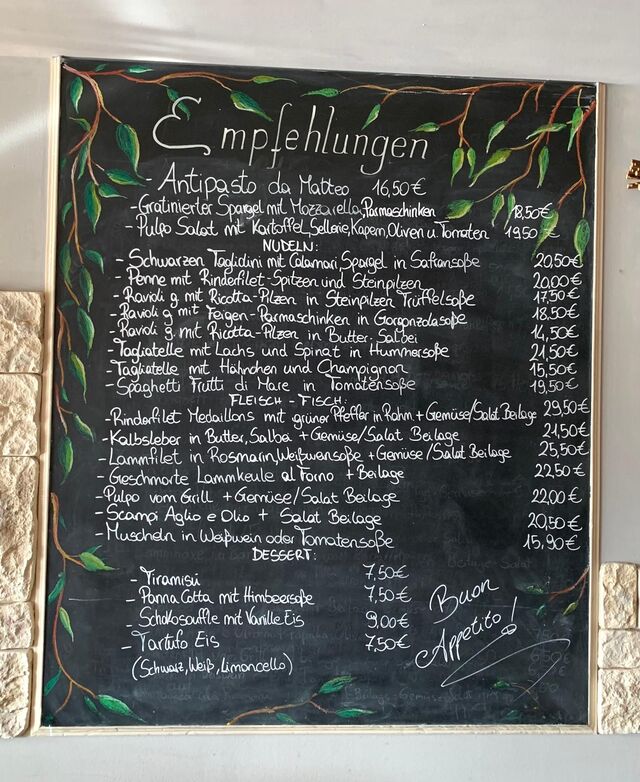 Empfehlungen
- Antipasto da Matteo 16,50€
- Gratinierter Spargel mit Mozzarella, Parmaschinken 18,50€
- Pulpo Salat mit Kartoffel, Sellerie, Kapern, Oliven u. Tomaten 19,50€
NUDELN:
- Schwarzen Taglidini mit Calamari, Spargel in Safransoße 20,50€
- Penne mit Rinderfilet-Spitzen und Steinpilzen 20,00€
- Ravioli g. mit Ricotta-Pilzen in Steinpilzen Trüffelsoße 17,50€
- Ravioli g. mit Feigen-Parmaschinken in Gorgonzolasoße 18,50€
- Ravioli g. mit Ricotta-Pilzen in Butter, Salbei 14,50€
- Tagliatelle mit Lachs und Spinat in Hummersoße 21,50€
- Tagliatelle mit Hähnchen und Champignon 15,50€
- Spaghetti Frutti di Mare in Tomatensoße 19,50€
FLEISCH - FISCH:
- Rinderfilet Medaillons mit grüner Pfeffer in Rahm + Gemüse/Salat Beilage 29,50€
- Kalbsleber in Butter, Salbei + Gemüse/Salat Beilage 21,50€
- Lammfilet in Rosmarin, Weißweinsoße + Gemüse/Salat Beilage 25,50€
- Geschmorte Lammkeule al Forno + Beilage 22,50€
- Pulpo vom Grill + Gemüse/Salat Beilage 22,00€
- Scampi Aglio e Olio + Salat Beilage 20,50€
- Muscheln in Weißwein oder Tomatensoße 15,90€
DESSERT:
- Tiramisú 7,50€
- Panna Cotta mit Himbeersoße 7,50€
- Schokosouffle mit Vanille Eis 9,00€
- Tartufo Eis 7,50€
(Schwarz, Weiß, Limoncello)
Buon
Appetito!